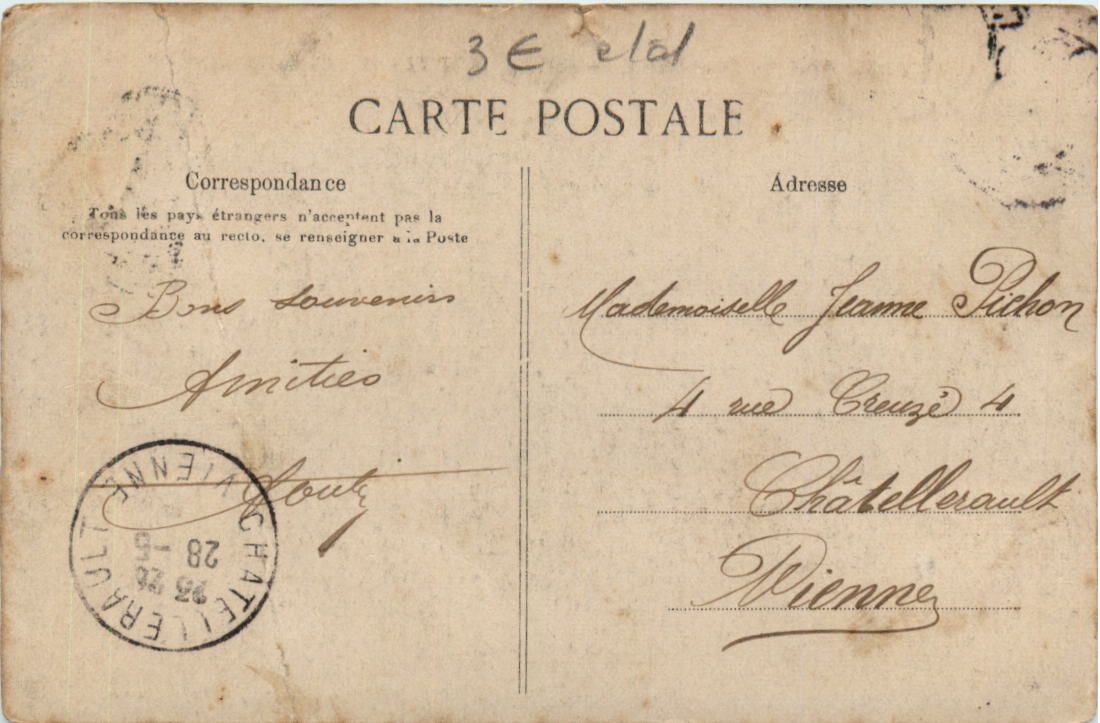 3 €
CARTE POSTALE
Correspondance
Tous les pays étrangers n'acceptent pas la
correspondance au recto, se renseigner à la Poste
Bons souvenirs
Amitiés
Adresse
Mademoiselle Jeanne Pichon
4 rue Creuzé 4
Châtellerault
Vienne
CHATELLERAULT VIENNE
28 -5